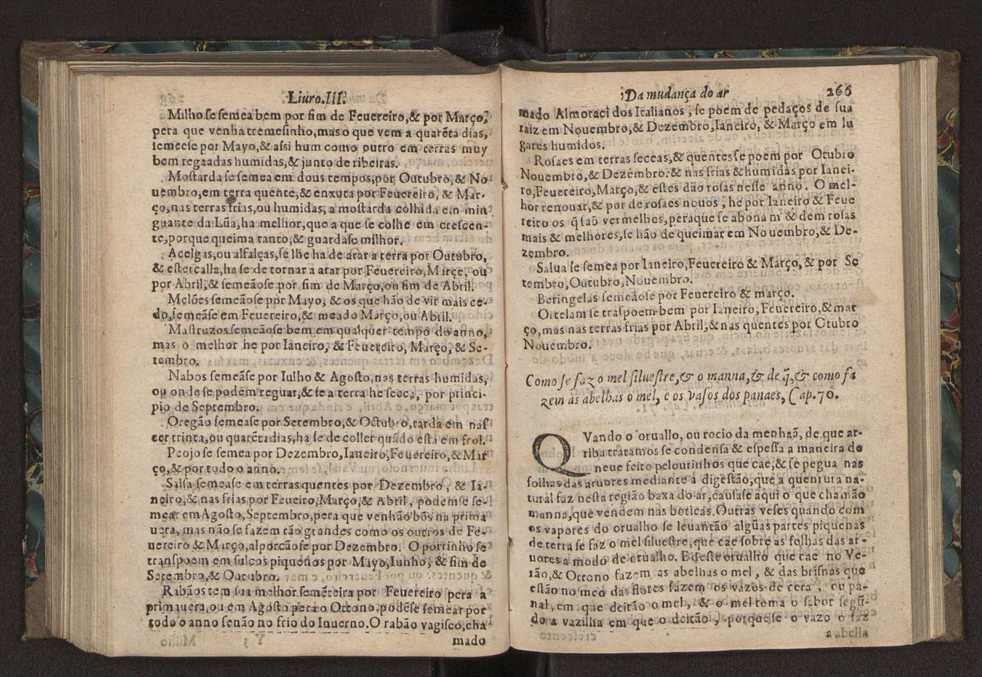 Liuro.III.
Milho se semea bem por fim de Feuereiro,& por Março,
pera que venha tremesinho,mas o que vem a quarẽta dias,
semeese por Mayo,& assi hum como outro em terras muy
bem regaadas humidas,& junto de ribeiras.
Mostarda se semea em dous tempos,por Outubro,& No
uembro,em terra quente,& enxuta por Feuereiro, & Mar-
ço,nas terras frias,ou humidas, a mostarda colhida em min
guante da Lũa,ha melhor,que a que se colhe em crescen-
te,porque queima tanto,& guardase milhor.
Acelgas,ou alfalças,se lhe ha de arar a terra por Outubro,
& estercalla,ha se de tornar a arar por Feuereiro,Março, ou
por Abril,& semeãose por fim de Março,ou fim de Abril.
Melões semeãose por Mayo, & os que hão de vir mais ce-
do,semeãse em Feuereiro,& meado Março,ou Abril.
Mastruzos semeãose bem em qualquer tempo do anno,
mas o melhor he por Ianeiro, & Feuereiro, Março, & Se-
tembro.
Nabos semeãse por Iulho & Agosto,nas terras humidas,
ou onde se podem reguar,& se a terra he secca, por princi-
pio de Septembro.
Oregão semease por Setembro,& Octubro,tarda em nas
cer trinta,ou quarẽta dias,ha se de colher quãdo està em frol.
Peojo se semea por Dezembro,Ianeiro,Feuereiro,& Mar
ço,& por todo o anno.
Salsa semease em terras quentes por Dezembro, & Ia-
neiro,& nas frias por Feuereiro,Março,& Abril, podemse se-
mear em Agosto,Septembro,pera que venhão bõs na prima
uera, mas não se fazem tão grandes como os outros de Fe-
uereiro & Março,alporcãose por Dezembro. O portinho se
transpoem em sulcos piquenos por Mayo,Iunho, & fim de
Setembro,& Outubro.
Rabãos tem sua melhor semẽteira por Feuereiro pera a
primauera,ou em Agosto pera o Octono,podẽse semear por
todo o anno senão no frio do Inuerno.O rabão vagisco,cha
Y 3 mado
Da mudança do ar 266
mado Almoraci dos Italianos, se poem de pedaços de sua
raiz em Nouembro,& Dezembro,Ianeiro, & Março em lu
gares humidos.
Rosaes em terras seccas,& quentes se poem por Otubro
Nouembro,& Dezembro:& nas frias & humidas por Ianei-
ro,Feuereiro,Março,& estes dão rosas nesse anno. O mel-
hor renouar,& por de rosaes nouos, he por Ianeiro & Feue
reiro os q̃ são vermelhes,peraque se abonam & dem rosas
mais & melhores,se hão de queimar em Nouembro,& De-
zembro.
Salua se semea por Ianeiro,Feuereiro & Março,& por Se
tembro,Outubro,Nouembro.
Beringelas semeãose por Feuereiro & março.
Ortelam se traspoem bem por Ianeiro,Feuereiro,& mar
ço,mas nas terras frias por Abril,& nas quentes por Ctubro
Nouembro.
Como se faz o mel siluestre,& o manna,& de q̃,& como fa
zem as abelhas o mel, e os vasos dos panaes, Cap.70.
QVando o orualho, ou rocio da menhãã, de que ar-
riba tratamos se condensa & espessa a maneira de
neue feito pelourinhos que cae,& se pegua nas
folhas das aruores mediante a digestão,que a quentura na-
tural faz nesta região baxa do ar,causase aqui o que chamão
manna,que vendem nas boticas.Outras veses quando com
os vapores do orualho se leuantão algũas partes piquenas
de terra se faz o mel siluestre,que cae sobre as folhas das ar-
uores a modo de orualho. E deste orualho que cae no Ve-
rão,& Octono fazem as abelhas o mel, & das brisnas que
estão no meo das flores fazem os vazos de cera, ou pa-
nal, em que deitão o mel, & o mel toma o sabor segũ-
do a vazilha em que o deitão, porque se o vazo o faz
a abelha